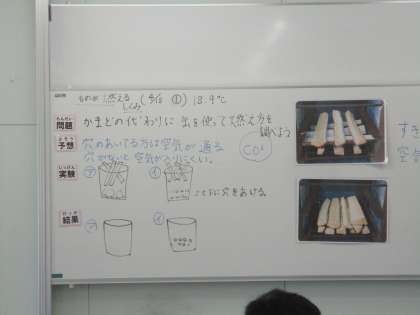 ものが燃える
しくみ
(4/16 ①) 18.9℃
もんだい
問題
かまどの代わりに缶を使って燃え方を
調べよう
よそう
予想
穴のあいてる方は空気が通る
穴がないと空気が入りにくい。
CO²
じっけん
実験
ア
イ
ここに穴をあける。
けっか
結果
ア
イ
すき
空気